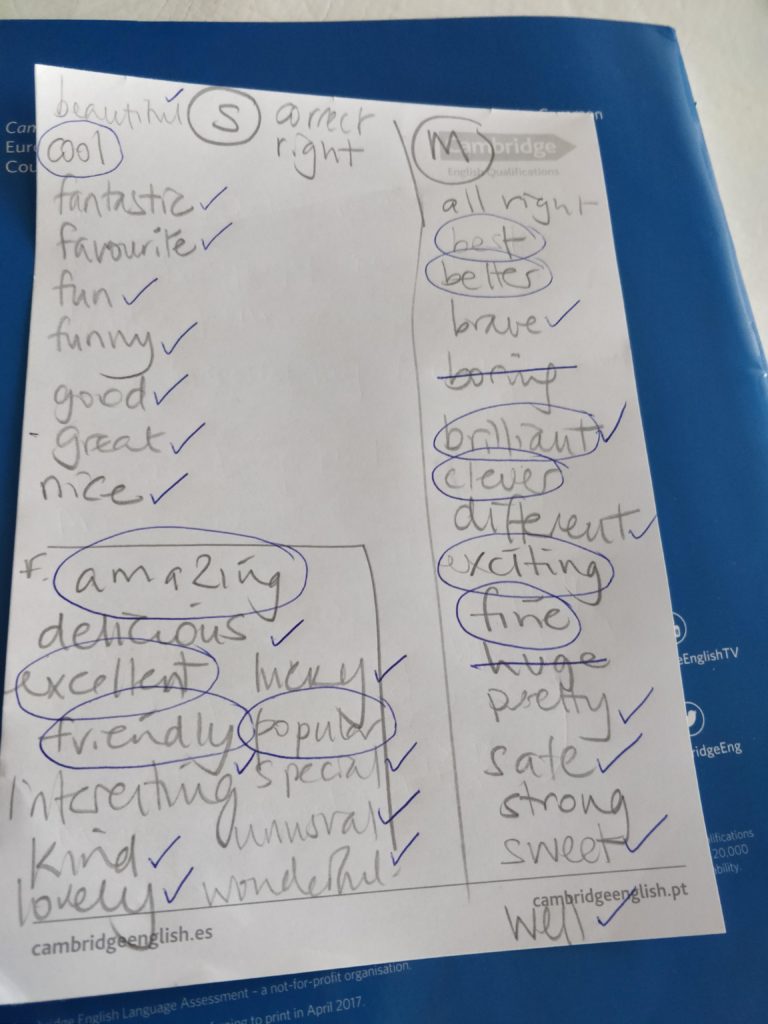 beautiful S correct
cool right
fantastic
favourite
fun
funny
good
great
nice
F. amazing
delicious
excellent lucky
friendly popular
interesting special
kind unusual
lovely wonderful
cambridgeenglish.es
M Cambridge
English Qualifications
all right
best
better
brave
boring
brilliant
clever
different
exciting
fine
huge
pretty
safe
strong
sweet
cambridgeenglish.pt
well
eEnglishTV
ridgeEng
lifications
20,000
bility.
bridge English Language Assessment – a not-for-profit organisation.
to print in April 2017.
Cam
Euro
Cou